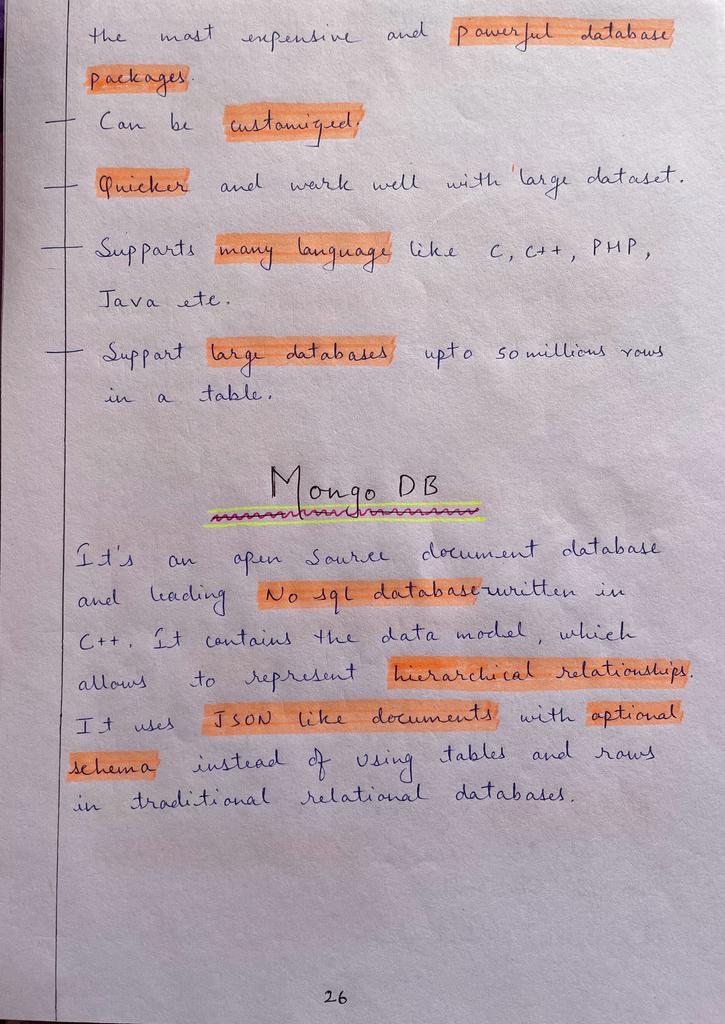 the most expensive and powerful database
packages.
— Can be customized.
— Quicker and work well with large dataset.
— Supports many language like C, C++, PHP,
Java etc.
— Support large databases upto 50 millions rows
in a table.
Mongo DB
It's an open source document database
and leading No sql database written in
C++. It contains the data model, which
allows to represent hierarchical relationships.
It uses JSON like documents with optional
schema instead of using tables and rows
in traditional relational databases.
26